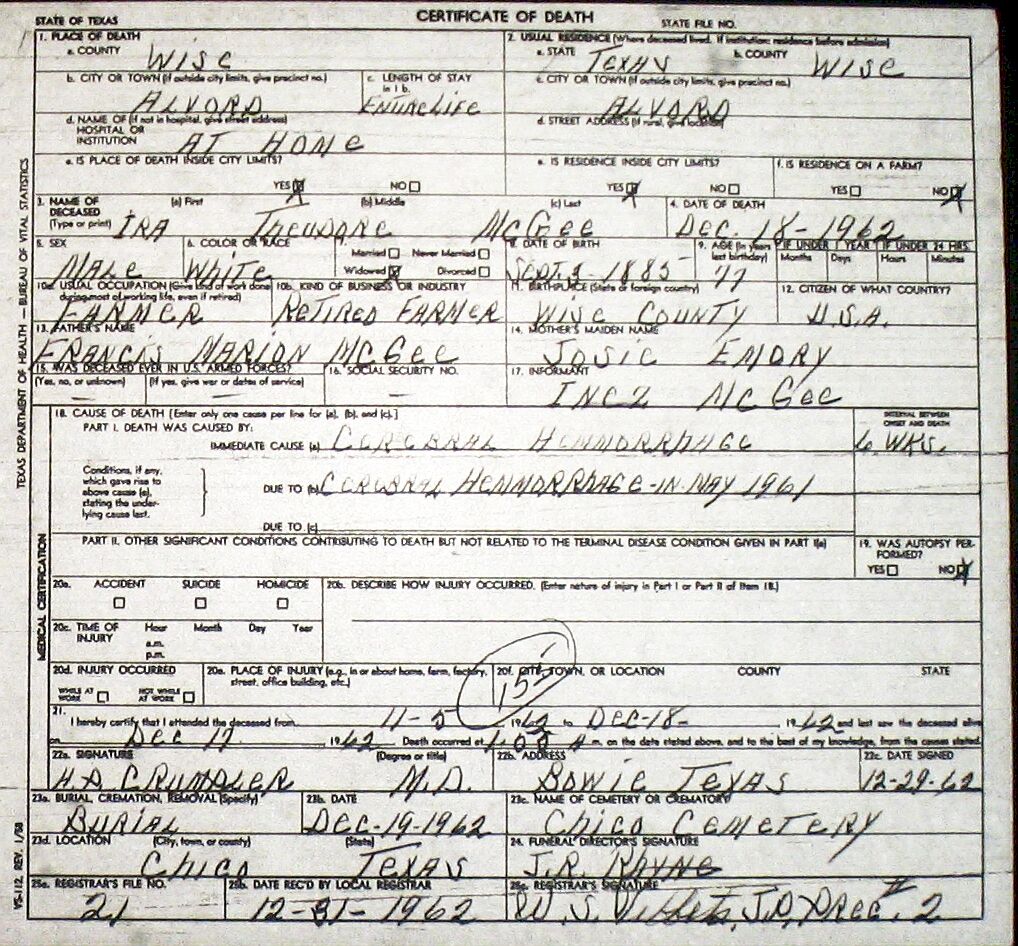 CERTIFICATE OF DEATH
STATE OF TEXAS STATE FILE NO.
1. PLACE OF DEATH
a. COUNTY WISE
2. USUAL RESIDENCE (Where deceased lived. If institution: residence before admission)
a. STATE TEXAS b. COUNTY WISE
b. CITY OR TOWN (If outside city limits, give precinct no.)
ALVORD
c. LENGTH OF STAY in 1 b.
ENTIRE LIFE
c. CITY OR TOWN (If outside city limits, give precinct no.)
ALVORD
d. NAME OF (If not in hospital, give street address)
HOSPITAL OR
INSTITUTION AT HOME
d. STREET ADDRESS (If rural, give location)
e. IS PLACE OF DEATH INSIDE CITY LIMITS?
YES X NO
e. IS RESIDENCE INSIDE CITY LIMITS?
YES X NO
f. IS RESIDENCE ON A FARM?
YES NO X
3. NAME OF DECEASED (Type or print)
(a) First (b) Middle (c) Last
IRA THEODORE McGEE
4. DATE OF DEATH
DEC. 18-1962
5. SEX
MALE
6. COLOR OR RACE
WHITE
7. Married Never Married
Widowed X Divorced
8. DATE OF BIRTH
SEPT. 3-1885
9. AGE (In years last birthday)
77
IF UNDER 1 YEAR IF UNDER 24 HRS.
Months Days Hours Minutes
10a. USUAL OCCUPATION (Give kind of work done during most of working life, even if retired)
FARMER
10b. KIND OF BUSINESS OR INDUSTRY
RETIRED FARMER
11. BIRTHPLACE (State or foreign country)
WISE COUNTY
12. CITIZEN OF WHAT COUNTRY?
U.S.A.
13. FATHER'S NAME
FRANCIS MARION McGEE
14. MOTHER'S MAIDEN NAME
JOSIE EMORY
15. WAS DECEASED EVER IN U.S. ARMED FORCES?
(Yes, no, or unknown) (If yes, give war or dates of service)
— —
16. SOCIAL SECURITY NO.
—
17. INFORMANT
INEZ McGEE
18. CAUSE OF DEATH [Enter only one cause per line for (a), (b), and (c).]
INTERVAL BETWEEN ONSET AND DEATH
PART I. DEATH WAS CAUSED BY:
IMMEDIATE CAUSE (a) CEREBRAL HEMMORRHAGE 6 WKS.
Conditions, if any, which gave rise to above cause (a), stating the underlying cause last.
DUE TO (b) CEREBRAL HEMMORRHAGE-IN-MAY 1961
DUE TO (c)
PART II. OTHER SIGNIFICANT CONDITIONS CONTRIBUTING TO DEATH BUT NOT RELATED TO THE TERMINAL DISEASE CONDITION GIVEN IN PART I(a)
19. WAS AUTOPSY PERFORMED?
YES NO X
20a. ACCIDENT SUICIDE HOMICIDE
20b. DESCRIBE HOW INJURY OCCURRED. (Enter nature of injury in Part I or Part II of Item 18.)
20c. TIME OF INJURY Hour Month Day Year
a.m.
p.m.
20d. INJURY OCCURRED
WHILE AT WORK NOT WHILE AT WORK
20e. PLACE OF INJURY (e.g., in or about home, farm, factory, street, office building, etc.)
20f. CITY, TOWN, OR LOCATION COUNTY STATE
21. I hereby certify that I attended the deceased from 11-5 1962 to DEC-18- 1962 and last saw the deceased alive
on DEC 17 1962 Death occurred at A m. on the date stated above, and to the best of my knowledge, from the causes stated.
22a. SIGNATURE (Degree or title)
H.D. CRUMPLER M.D.
22b. ADDRESS
BOWIE TEXAS
22c. DATE SIGNED
12-29-62
23a. BURIAL, CREMATION, REMOVAL (Specify)
BURIAL
23b. DATE
DEC-19-1962
23c. NAME OF CEMETERY OR CREMATORY
CHICO CEMETERY
23d. LOCATION (City, town, or county) (State)
CHICO TEXAS
24. FUNERAL DIRECTOR'S SIGNATURE
J.R. RHYNE
25a. REGISTRAR'S FILE NO.
21
25b. DATE REC'D BY LOCAL REGISTRAR
12-31-1962
25c. REGISTRAR'S SIGNATURE
W. S. J.P. Prec. # 2
TEXAS DEPARTMENT OF HEALTH — BUREAU OF VITAL STATISTICS
MEDICAL CERTIFICATION
VS-112 REV. 1/58